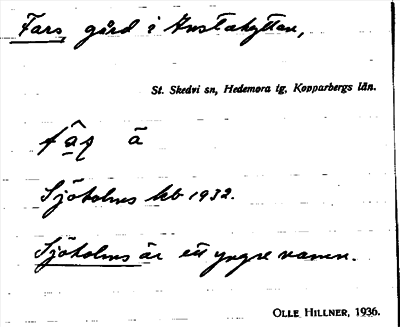 Fars gård i Anstahyttan,
St. Skedvi sn, Hedemora tg, Kopparbergs län.
ä
Sjöholms kb 1932.
Sjöholms är ett yngre namn.
OLLE HILLNER, 1936.